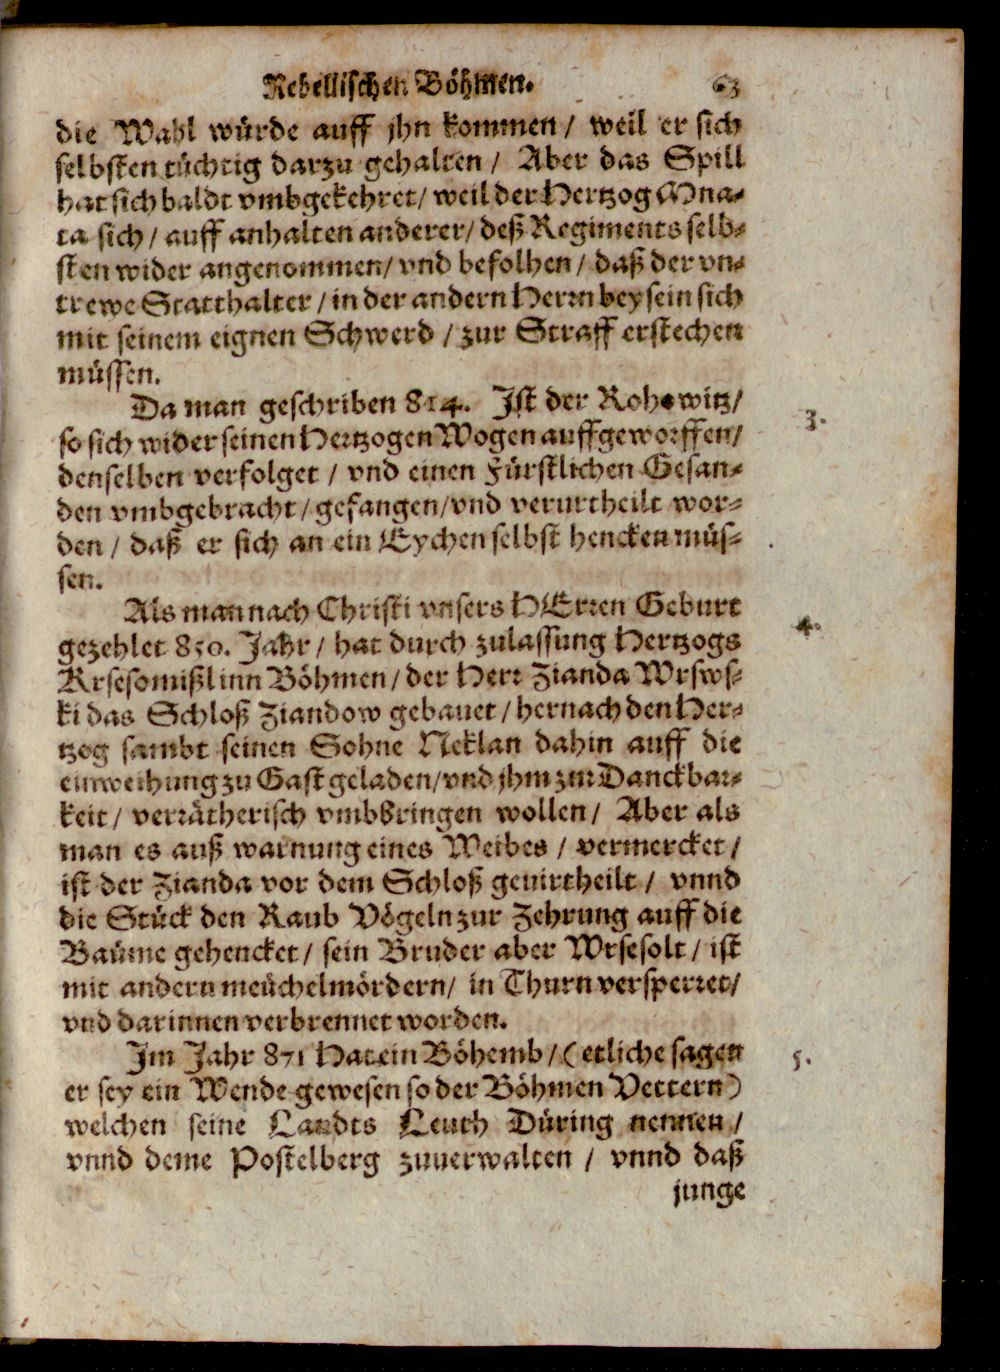 Rebellischen Böhmen. 63
die Wahl würde auff jhn kommen / weil er sich
selbsten tüchtig darzu gehalten / Aber das Spill
hat sich baldt vmbgekehret / weil der Hertzog Mna-
ta sich / auff anhalten anderer / deß Regiments selb-
sten wider angenommen / vnd befolhen / daß der vn-
trewe Statthalter / in der andern Herrn beysein sich
mit seinem eignen Schwerd / zur Straff erstechen
müssen.
Da man geschriben 814. Ist der Rohowitz /
3.
so sich wider seinen Hertzogen Wogen auffgeworffen /
denselben verfolget / vnd einen Fürstlichen Gesan-
den vmbgebracht / gefangen / vnd verurtheilt wor-
den / daß er sich an ein Eychen selbst hencken müs-
sen.
Als man nach Christi vnsers HErren Geburt
4.
gezehlet 850. Jahr / hat durch zulassung Hertzogs
Krsesomißl inn Böhmen / der Herr Zianda Wrsws-
ki das Schloß Ziandow gebauet / hernach den Her-
tzog sambt seinen Sohne Neklan dahin auff die
einweihung zu Gast geladen / vnd jhm zur Danckbar-
keit / verrätherisch vmbbringen wollen / Aber als
man es auß warnung eines Weibes / vermercket /
ist der Zianda vor dem Schloß geuirtheilt / vnnd
die Stück den Raub Vögeln zur Zehrung auff die
Baüme gehencket / sein Bruder aber Wrsesolt / ist
mit andern meüchelmördern / in Thurn versperret /
vnd darinnen verbrennet worden.
Im Jahr 871 Hat ein Böhemb / (etliche sagen
5.
er sey ein Wende gewesen so der Böhmen Vettern)
welchen seine Landts Leuth Düring nennen /
vnnd deme Postelberg zuuerwalten / vnnd daß
junge